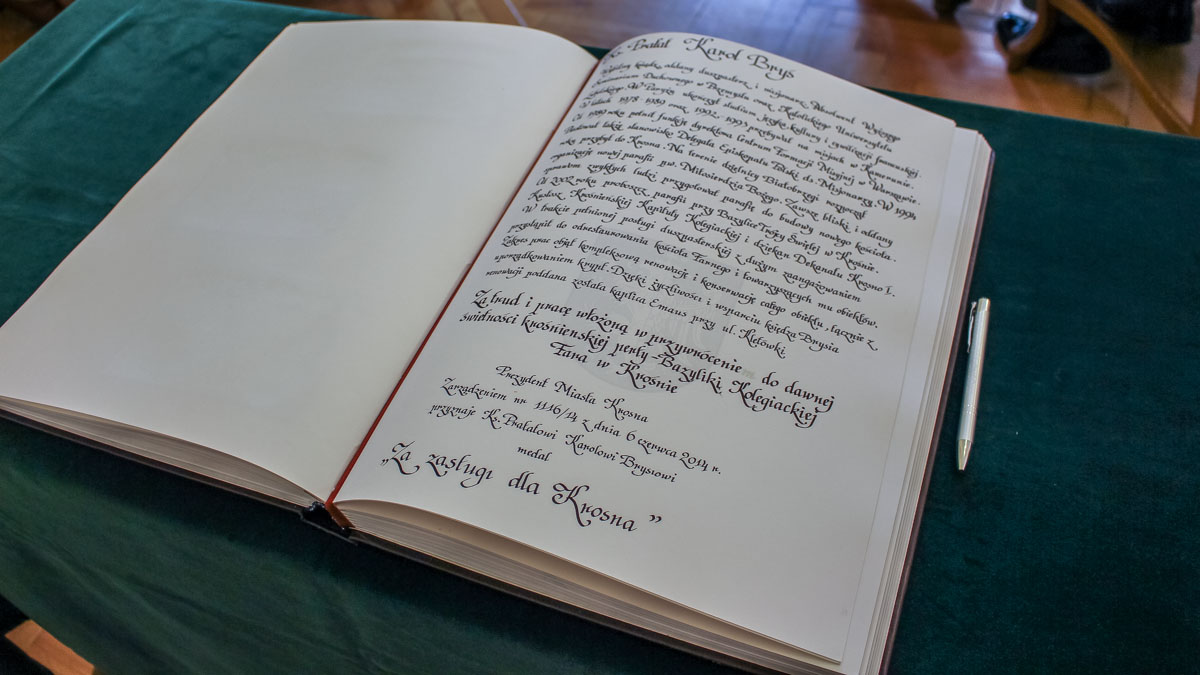 Ks. Prałat Karol Bryś
Wybitny ksiądz, oddany duszpasterz i misjonarz. Absolwent Wyższego
Seminarium Duchownego w Przemyślu oraz Katolickiego Uniwersytetu
Lubelskiego. W Paryżu ukończył studium języka, kultury i cywilizacji francuskiej.
W latach 1978-1989 oraz 1992-1993 przebywał na misjach w Kamerunie.
Od 1989 roku pełnił funkcję dyrektora Centrum Formacji Misyjnej w Warszawie.
Piastował także stanowisko Delegata Episkopatu Polski ds. Misjonarzy. W 1994
roku przybył do Krosna. Na terenie dzielnicy Białobrzegi rozpoczął
organizację nowej parafii p.w. Miłosierdzia Bożego. Zawsze bliski i oddany
sprawom zwykłych ludzi przygotował parafię do budowy nowego kościoła.
Od 2002 roku proboszcz parafii przy Bazylice Trójcy Świętej w Krośnie.
Kustosz Krośnieńskiej Kapituły Kolegiackiej i dziekan Dekanatu Krosno I.
W trakcie pełnionej posługi duszpasterskiej z dużym zaangażowaniem
przystąpił do odrestaurowania kościoła Farnego i towarzyszących mu obiektów.
Zakres prac objął kompleksową renowację i konserwację całego obiektu, łącznie z
uporządkowaniem krypt. Dzięki życzliwości i wsparciu księdza Brysia
renowacji poddana została kaplica Emaus przy ul. Kletówki.
Za trud i pracę włożoną w przywrócenie do dawnej
świetności krośnieńskiej perły - Bazyliki Kolegiackiej
Fara w Krośnie
Prezydent Miasta Krosna
Zarządzeniem nr 1116/14 z dnia 6 czerwca 2014 r.
przyznaje Ks. Prałatowi Karolowi Brysiowi
medal
„Za zasługi dla Krosna”